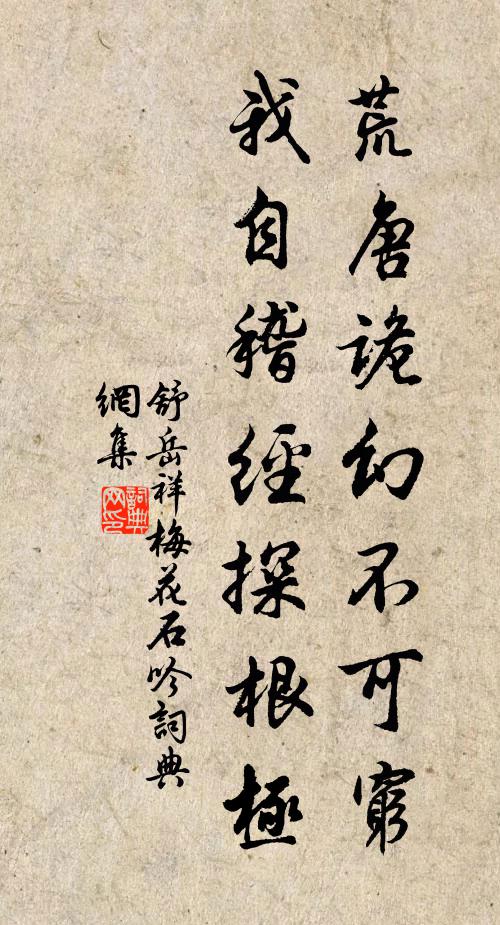 荒唐詭幻不可窮
我自稽經探根極
舒岳祥梅花石吟詞典
網集
詞典
网印